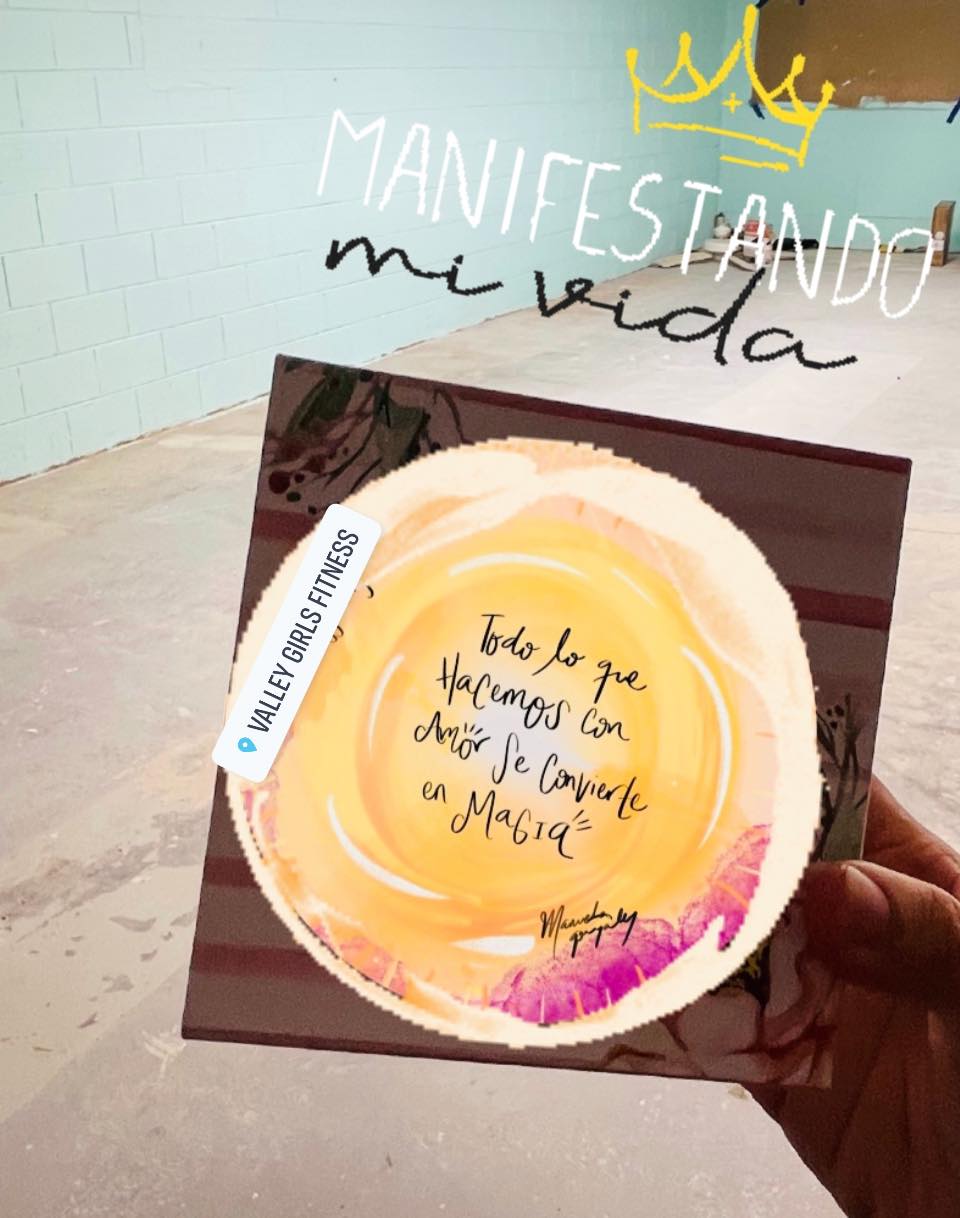 MANIFESTANDO
mi vida
VALLEY GIRLS FITNESS
Todo lo que
Hacemos con
Amor Se Convierte
en Magia